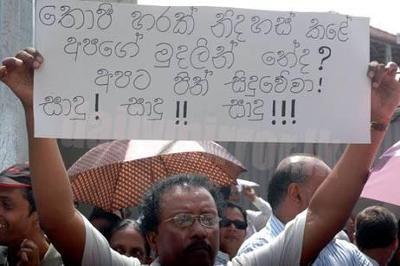 තොපි හරක් නිදහස් කළේ
අපගේ මුදලින් නේද?
අපට පින් සිදුවේවා!
සාදු! සාදු!! සාදු!!!